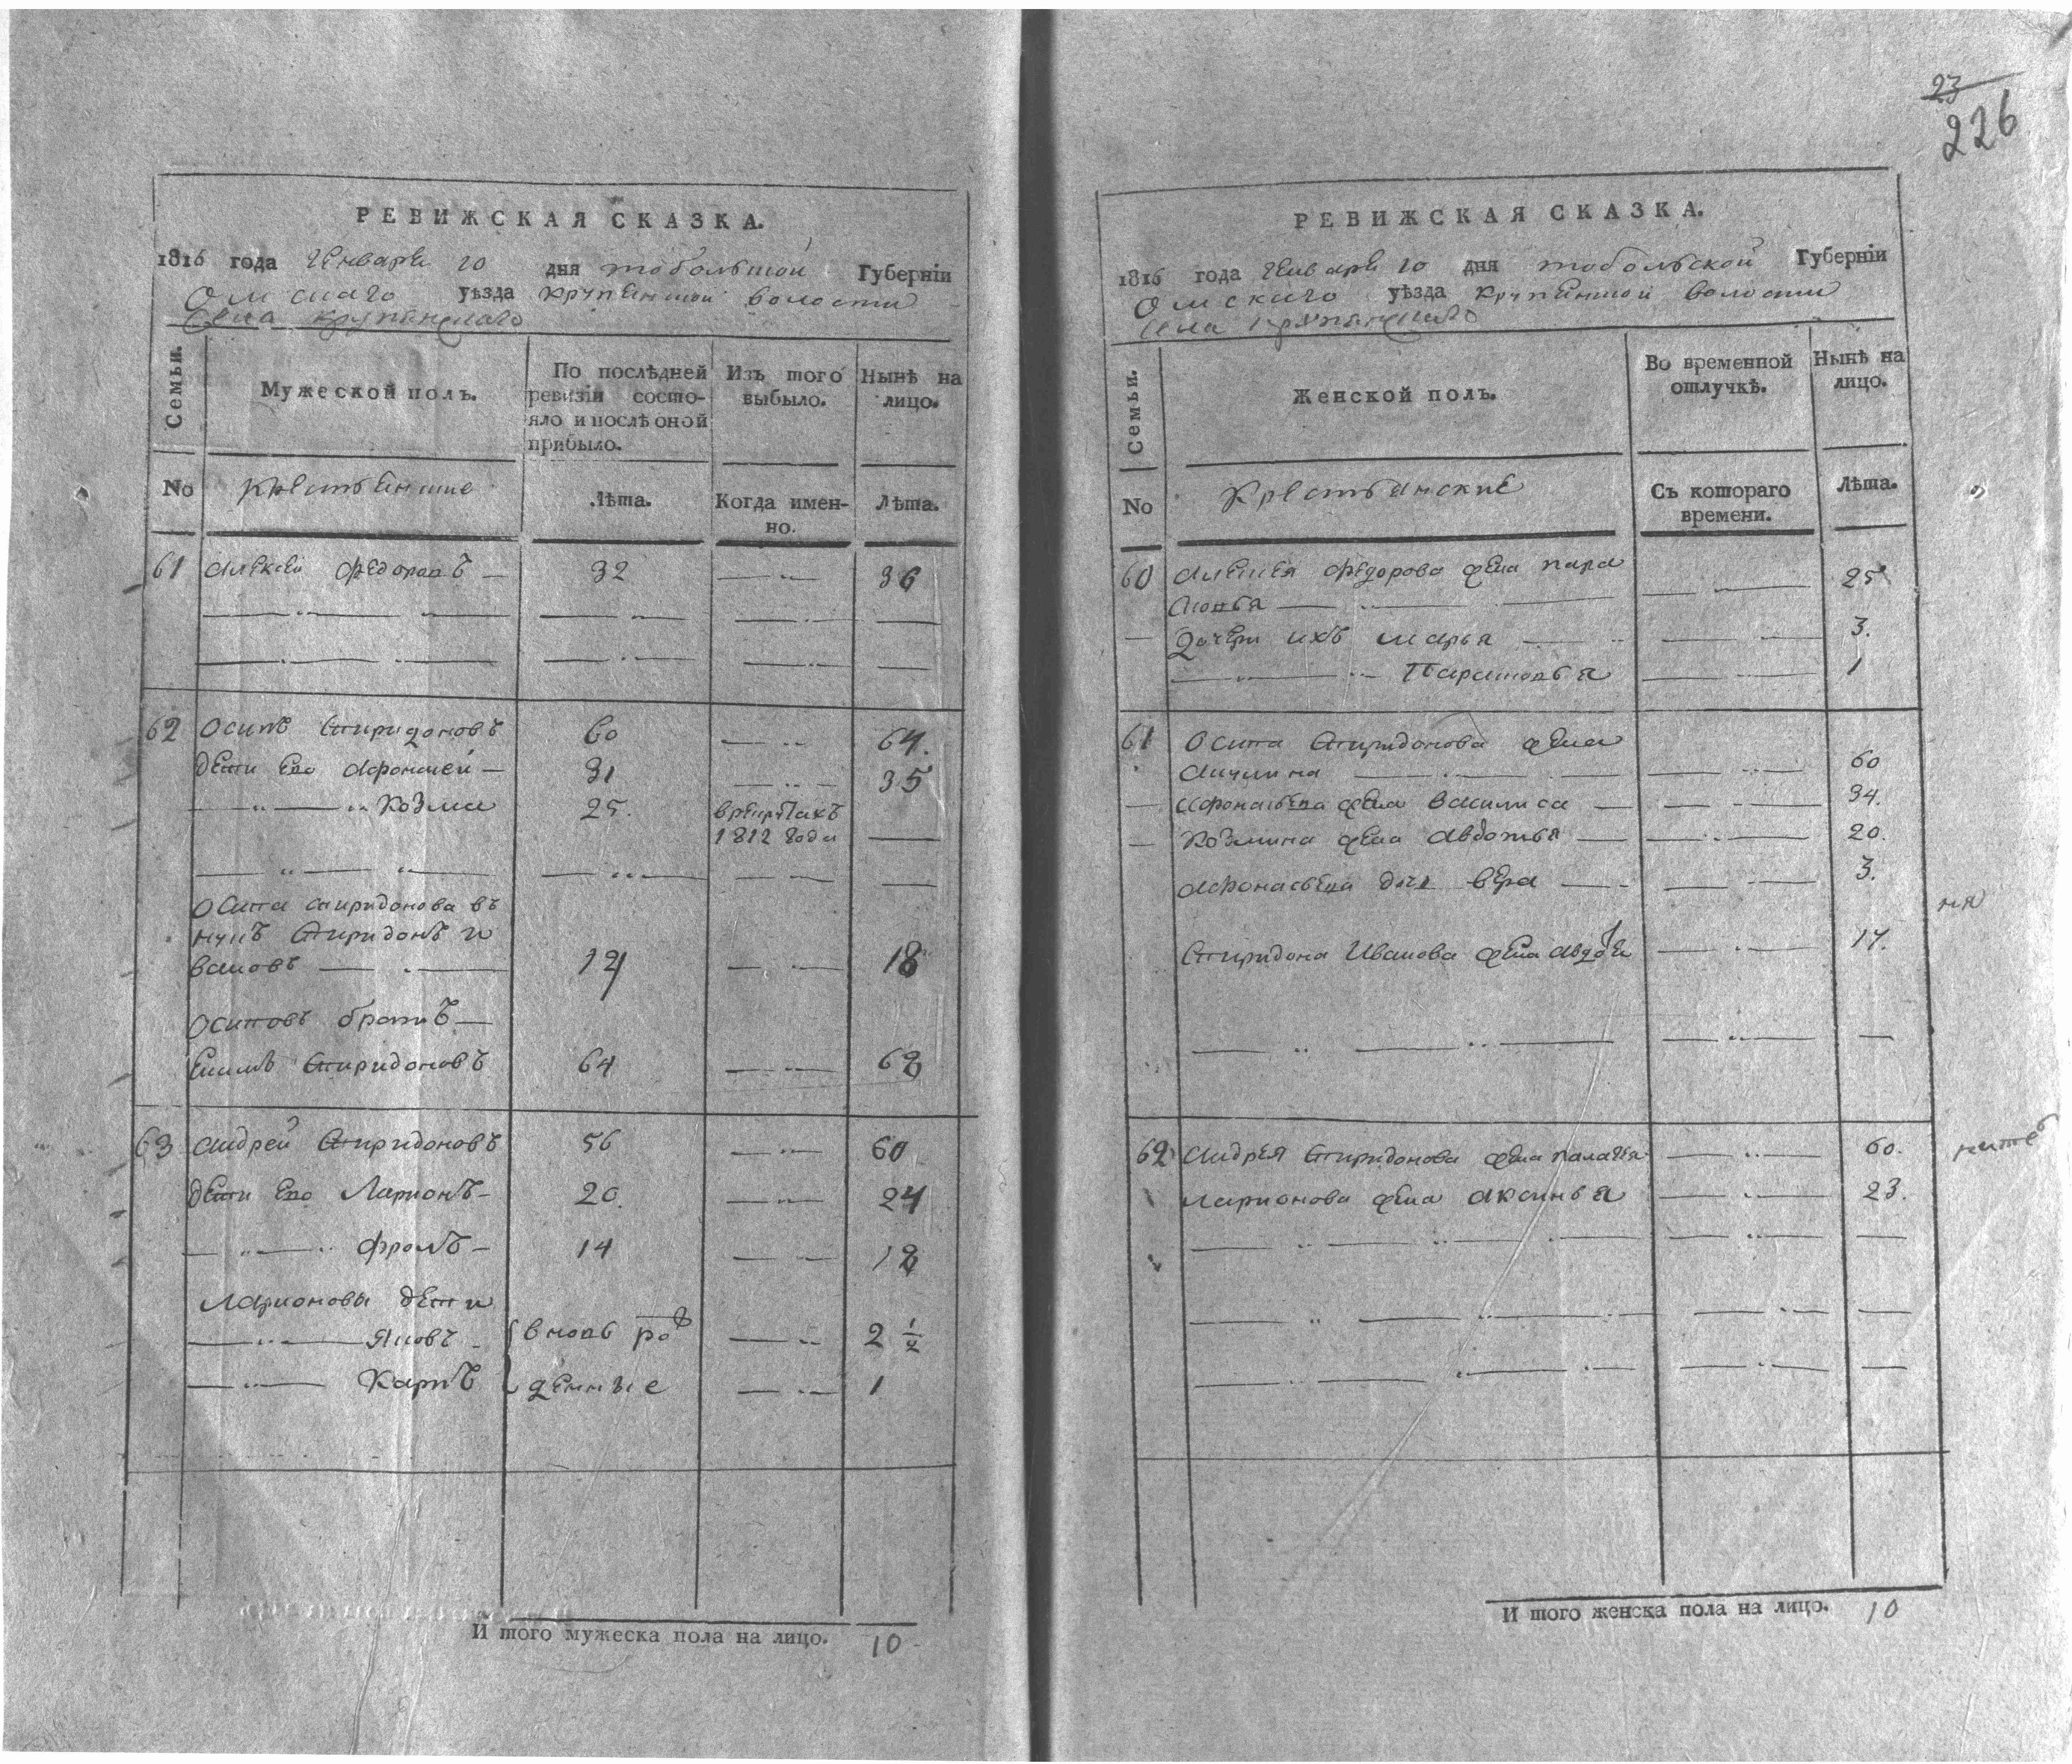 23
226
РЕВИЖСКАЯ СКАЗКА.
1816 года Генваря 10 дня тобольской Губерніи
Омскаго уѣзда крупянской волости
Села крупянскаго
Семьи.
Мужеской полъ.
По послѣдней ревизіи состо-
яло и послѣ оной
прибыло.
Изъ того
выбыло.
Нынѣ на
лицо.
No
крестьянские
Лѣта.
Когда имен-
но.
Лѣта.
61 Алексеи Федоровъ — 32 36
62 Осипъ Спиридоновъ 60 64.
дети Ево Афонасей — 31 35
Козма 25. в рекрутахъ
1812 года
Осипа спиридонова в
нукъ Спиридонъ и
вановъ 14 18
Осиповъ братъ —
Екимъ Спиридоновъ 64 68
63 Андрей Спиридоновъ 56 60
дети Ево Ларионъ — 20. 24
Фролъ — 14 18
Ларионовы дети
Яковъ вновь рож 2 1/2
Карпъ денные 1
И того мужеска пола на лицо. 10
РЕВИЖСКАЯ СКАЗКА.
1816 года Генваря 10 дня тобольской Губерніи
Омскаго уѣзда крупянской волости
Села крупянскаго
Семьи.
Женской полъ.
Во временной
отлучкѣ.
Нынѣ на
лицо.
No
Крестьянские
Съ котораго
времени.
Лѣта.
60 Алексея Федорова жена пара 25
сковья
дочери ихъ марья 3.
Парасковья 1
61 Осипа Спиридонова жена
Акулина 60
Афонасьева жена Василиса 34.
Козмина жена Авдотья 20.
Афонасьева дочь Вера 3.
Спиридона Иванова жена Авдотья 17.
62 Андрея Спиридонова жена палагея 60.
Ларионова жена Аксинья 23.
И того женска пола на лицо. 10